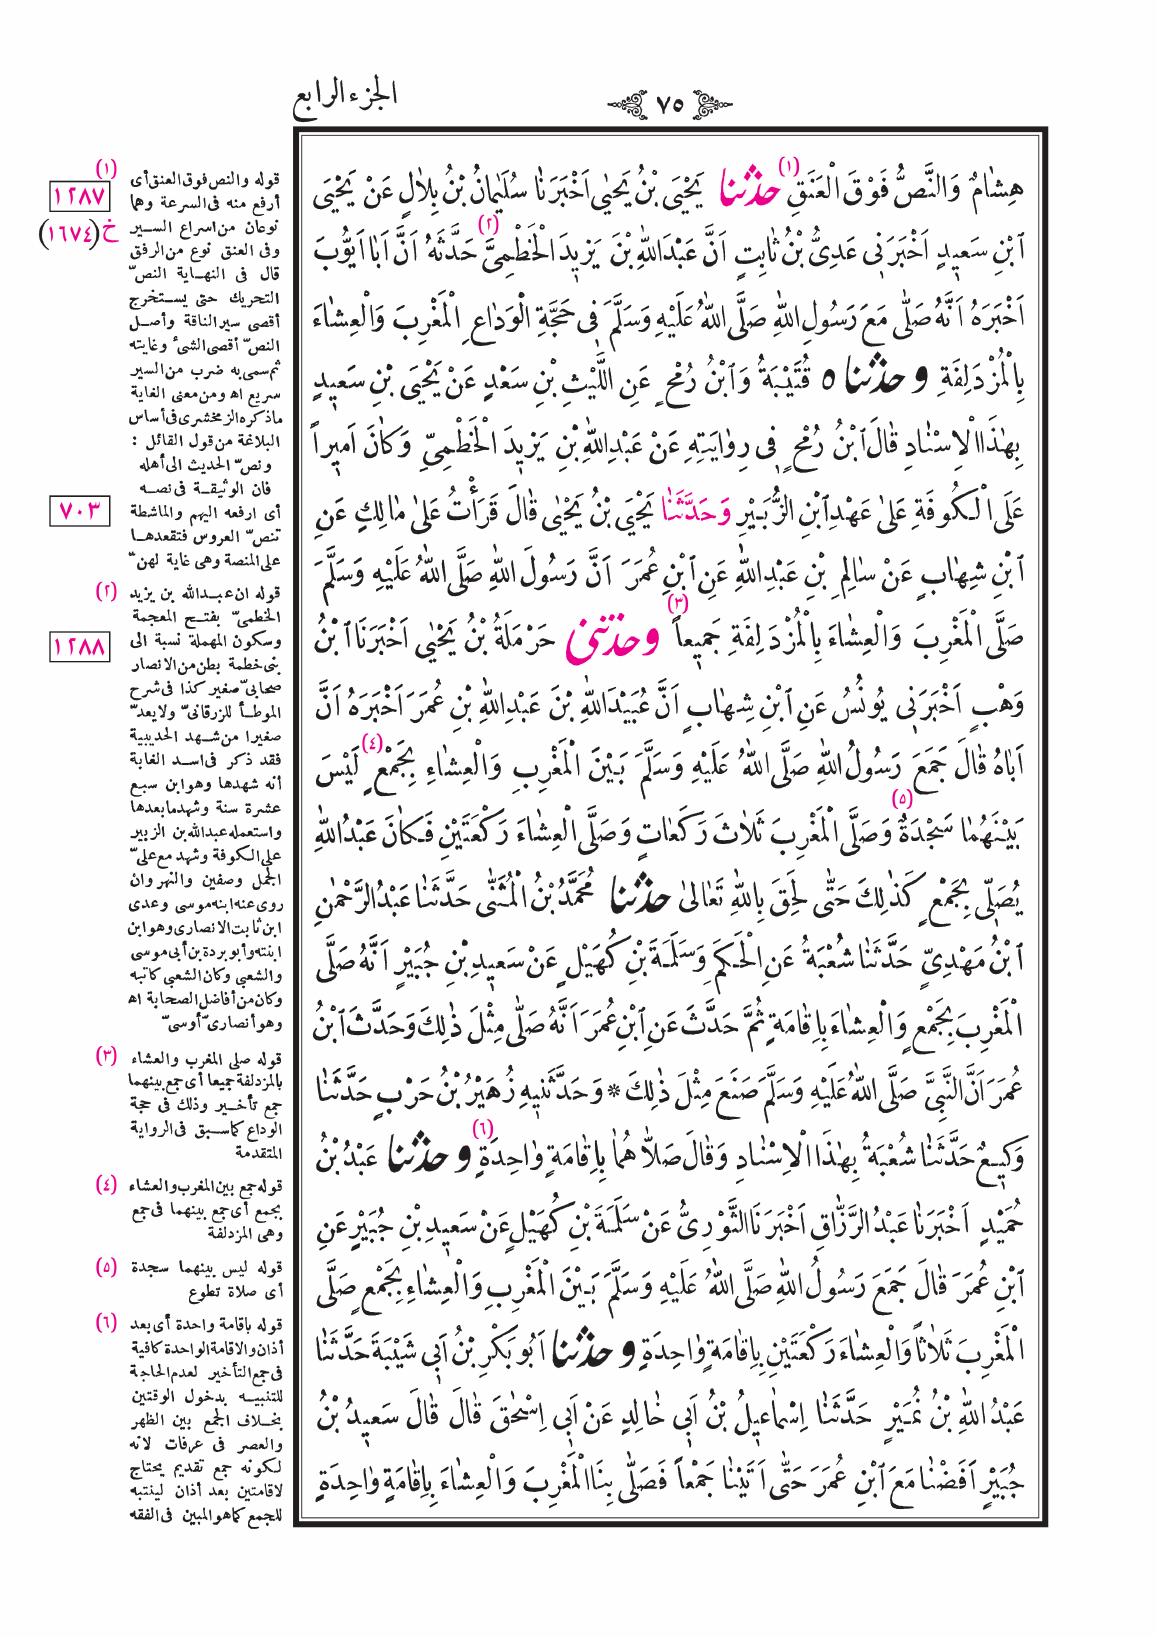 الجزء الرابع
٧٥
هِشَامٌ وَالنَّصُّ فَوْقَ الْعَنَقِ (١) حدثنا يَحْيَى بْنُ يَحْيٰى اَخْبَرَنَا سُلَيْمَانُ بْنُ بِلَالٍ عَنْ يَحْيَى
ابْنِ سَعِيدٍ اَخْبَرَنِي عَدِيُّ بْنُ ثَابِتٍ اَنَّ عَبْدَاللّٰهِ بْنَ يَزِيدَ الْخَطْمِيَّ (٢) حَدَّثَهُ اَنَّ اَبَا اَيُّوبَ
اَخْبَرَهُ اَنَّهُ صَلّٰى مَعَ رَسُولِ اللّٰهِ صَلَّى اللّٰهُ عَلَيْهِ وَسَلَّمَ فِي حَجَّةِ الْوَدَاعِ الْمَغْرِبَ وَالْعِشَاءَ
بِالْمُزْدَلِفَةِ وحدثنا ه قُتَيْبَةُ وَابْنُ رُمْحٍ عَنِ اللَّيْثِ بْنِ سَعْدٍ عَنْ يَحْيَى بْنِ سَعِيدٍ
بِهٰذَا الْاِسْنَادِ قَالَ ابْنُ رُمْحٍ فِي رِوَايَتِهِ عَنْ عَبْدِاللّٰهِ بْنِ يَزِيدَ الْخَطْمِيِّ وَكَانَ اَمِيراً
عَلَى الْكُوفَةِ عَلٰى عَهْدِ ابْنِ الزُّبَيْرِ وَحَدَّثَنَا يَحْيَى بْنُ يَحْيٰى قَالَ قَرَأْتُ عَلٰى مَالِكٍ عَنِ
ابْنِ شِهَابٍ عَنْ سَالِمِ بْنِ عَبْدِاللّٰهِ عَنِ ابْنِ عُمَرَ اَنَّ رَسُولَ اللّٰهِ صَلَّى اللّٰهُ عَلَيْهِ وَسَلَّمَ
صَلَّى الْمَغْرِبَ وَالْعِشَاءَ بِالْمُزْدَلِفَةِ جَمِيعاً (٣) وحدثنى حَرْمَلَةُ بْنُ يَحْيٰى اَخْبَرَنَا ابْنُ
وَهْبٍ اَخْبَرَنِي يُونُسُ عَنِ ابْنِ شِهَابٍ اَنَّ عُبَيْدَاللّٰهِ بْنَ عَبْدِاللّٰهِ بْنِ عُمَرَ اَخْبَرَهُ اَنَّ
اَبَاهُ قَالَ جَمَعَ رَسُولُ اللّٰهِ صَلَّى اللّٰهُ عَلَيْهِ وَسَلَّمَ بَيْنَ الْمَغْرِبِ وَالْعِشَاءِ بِجَمْعٍ (٤) لَيْسَ
بَيْنَهُمَا سَجْدَةٌ (٥) وَصَلَّى الْمَغْرِبَ ثَلَاثَ رَكَعَاتٍ وَصَلَّى الْعِشَاءَ رَكْعَتَيْنِ فَكَانَ عَبْدُاللّٰهِ
يُصَلِّي بِجَمْعٍ كَذٰلِكَ حَتّٰى لَحِقَ بِاللّٰهِ تَعَالٰى حدثنا مُحَمَّدُ بْنُ الْمُثَنّٰى حَدَّثَنَا عَبْدُالرَّحْمٰنِ
ابْنُ مَهْدِيٍّ حَدَّثَنَا شُعْبَةُ عَنِ الْحَكَمِ وَسَلَمَةَ بْنِ كُهَيْلٍ عَنْ سَعِيدِ بْنِ جُبَيْرٍ اَنَّهُ صَلَّى
الْمَغْرِبَ بِجَمْعٍ وَالْعِشَاءَ بِاِقَامَةٍ ثُمَّ حَدَّثَ عَنِ ابْنِ عُمَرَ اَنَّهُ صَلّٰى مِثْلَ ذٰلِكَ وَحَدَّثَ ابْنُ
عُمَرَ اَنَّ النَّبِيَّ صَلَّى اللّٰهُ عَلَيْهِ وَسَلَّمَ صَنَعَ مِثْلَ ذٰلِكَ * وَحَدَّثَنِيهِ زُهَيْرُ بْنُ حَرْبٍ حَدَّثَنَا
وَكِيعٌ حَدَّثَنَا شُعْبَةُ بِهٰذَا الْاِسْنَادِ وَقَالَ صَلَّاهُمَا بِاِقَامَةٍ وَاحِدَةٍ (٦) وحدثنا عَبْدُ بْنُ
حُمَيْدٍ اَخْبَرَنَا عَبْدُ الرَّزَّاقِ اَخْبَرَنَا الثَّوْرِيُّ عَنْ سَلَمَةَ بْنِ كُهَيْلٍ عَنْ سَعِيدِ بْنِ جُبَيْرٍ عَنِ
ابْنِ عُمَرَ قَالَ جَمَعَ رَسُولُ اللّٰهِ صَلَّى اللّٰهُ عَلَيْهِ وَسَلَّمَ بَيْنَ الْمَغْرِبِ وَالْعِشَاءِ بِجَمْعٍ صَلَّى
الْمَغْرِبَ ثَلَاثاً وَالْعِشَاءَ رَكْعَتَيْنِ بِاِقَامَةٍ وَاحِدَةٍ وحدثنا اَبُو بَكْرِ بْنُ اَبِي شَيْبَةَ حَدَّثَنَا
عَبْدُ اللّٰهِ بْنُ نُمَيْرٍ حَدَّثَنَا اِسْمَاعِيلُ بْنُ اَبِي خَالِدٍ عَنْ اَبِي اِسْحٰقَ قَالَ قَالَ سَعِيدُ بْنُ
جُبَيْرٍ اَفَضْنَا مَعَ ابْنِ عُمَرَ حَتّٰى اَتَيْنَا جَمْعاً فَصَلّٰى بِنَا الْمَغْرِبَ وَالْعِشَاءَ بِاِقَامَةٍ وَاحِدَةٍ
(١) قوله والنص فوق العنق أى
١٢٨٧ أرفع منه فى السرعة وهما
خ (١٦٧٤) نوعان من اسراع السير
وفى العنق نوع من الرفق
قال فى النهاية النصّ
التحريك حتى يستخرج
أقصى سير الناقة وأصل
النصّ أقصى الشىء وغايته
ثم سمى به ضرب من السير
سريع اه ومن معنى الغاية
ماذكره الزمخشرى فى أساس
البلاغة من قول القائل :
ونصّ الحديث الى أهله
فان الوثيقة فى نصه
٧٠٣ أى ارفعه اليهم والماشطة
تنصّ العروس فتقعدها
على المنصة وهى غاية لهنّ
(٢) قوله ان عبدالله بن يزيد
الخطمىّ بفتح المعجمة
١٢٨٨ وسكون المهملة نسبة الى
بنى خطمة بطن من الانصار
صحابىّ صغير كذا فى شرح
الموطأ للزرقانىّ ولا يعدّ
صغيرا من شهد الحديبية
فقد ذكر فى اسد الغابة
أنه شهدها وهو ابن سبع
عشرة سنة وشهد مابعدها
واستعمله عبدالله بن الزبير
على الكوفة وشهد مع علىّ
الجمل وصفين والنهروان
روى عنه ابنه موسى وعدى
ابن ثابت الانصارى وهو ابن
ابنته وأبو بردة بن أبى موسى
والشعبى وكان الشعبى كاتبه
وكان من أفاضل الصحابة اه
وهو أنصارىّ أوسىّ
(٣) قوله صلى المغرب والعشاء
بالمزدلفة جميعا أى جمع بينهما
جمع تأخير وذلك فى حجة
الوداع كما سبق فى الرواية
المتقدمة
(٤) قوله جمع بين المغرب والعشاء
بجمع أى جمع بينهما فى جمع
وهى المزدلفة
(٥) قوله ليس بينهما سجدة
أى صلاة تطوع
(٦) قوله باقامة واحدة أى بعد
أذان والاقامة الواحدة كافية
فى جمع التأخير لعدم الحاجة
للتنبيه بدخول الوقتين
بخلاف الجمع بين الظهر
والعصر فى عرفات لانه
لكونه جمع تقديم يحتاج
لاقامتين بعد أذان لينتبه
للجمع كما هو المبين فى الفقه